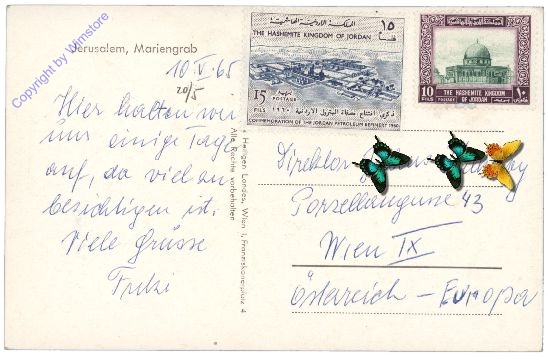 Copyright by Wimstore
Jerusalem, Mariengrab
10.V.65
20/5
Hier halten wir
uns einige Tage
auf, da viel zu
besichtigen ist.
Viele Grüsse
Heiligen Landes, Wien I, Franziskanerplatz 4
Alle Rechte vorbehalten
المملكة الاردنية الهاشمية
١٥
فلسا
THE HASHEMITE KINGDOM OF JORDAN
15
FILS
POSTAGE
بريد
ذكرى افتتاح مصفاة البترول الاردنية ١٩٦٠
COMMEMORATION OF THE JORDAN PETROLEUM REFINERY 1960
10
FILS
THE HASHEMITE KINGDOM
POSTAGE OF JORDAN
١٠
Direktor
Porzellangasse 43
Wien IX
Österreich - Europa